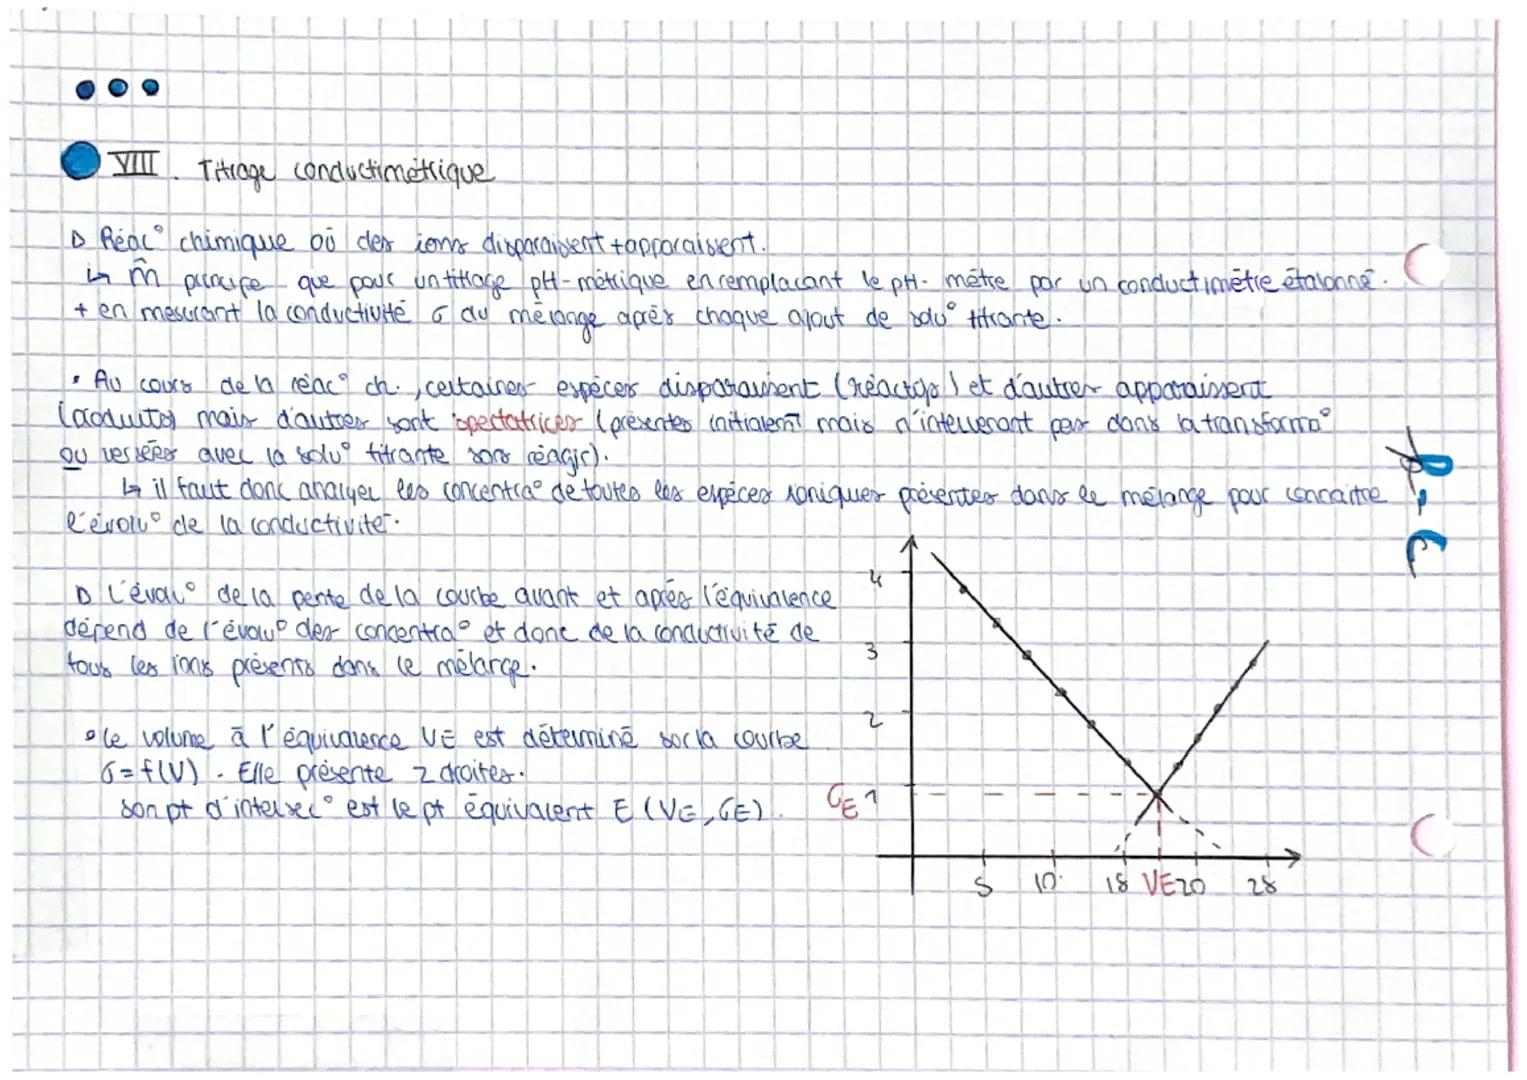 VIII. Titrage conductimétrique
▷ Réac° chimique où des ions disparaissent + apparaissent.
↳ m̂ principe que pour un titrage pH-métrique en remplacant le pH-mètre par un conductimètre étalonné.
+ en mesurant la conductivité σ du mélange après chaque ajout de solu° titrante.
• Au cours de la réac° ch., certaines espèces disparaissent (réactifs) et d'autres apparaissent
(produits) mais d'autres sont spectatrices (présentes initialem̄t mais n'intervenant pas dans la transforma°
ou versées avec la solu° titrante sans réagir).
↳ il faut donc analyser les concentra° de toutes les espèces ioniques présentes dans le mélange pour connaitre
l'évolu° de la conductivité.
▷ L'évolu° de la pente de la courbe avant et après l'équivalence
dépend de l'évolu° des concentra° et donc de la conductivité de
tous les ions présents dans le mélange.
• Le volume à l'équivalence VE est déterminé sur la courbe
σ = f(V). Elle présente 2 droites.
son pt d'intersec° est le pt équivalent E (VE, σE).
4
3
2
σE 1
5 10 18 VE 20 28
P-C